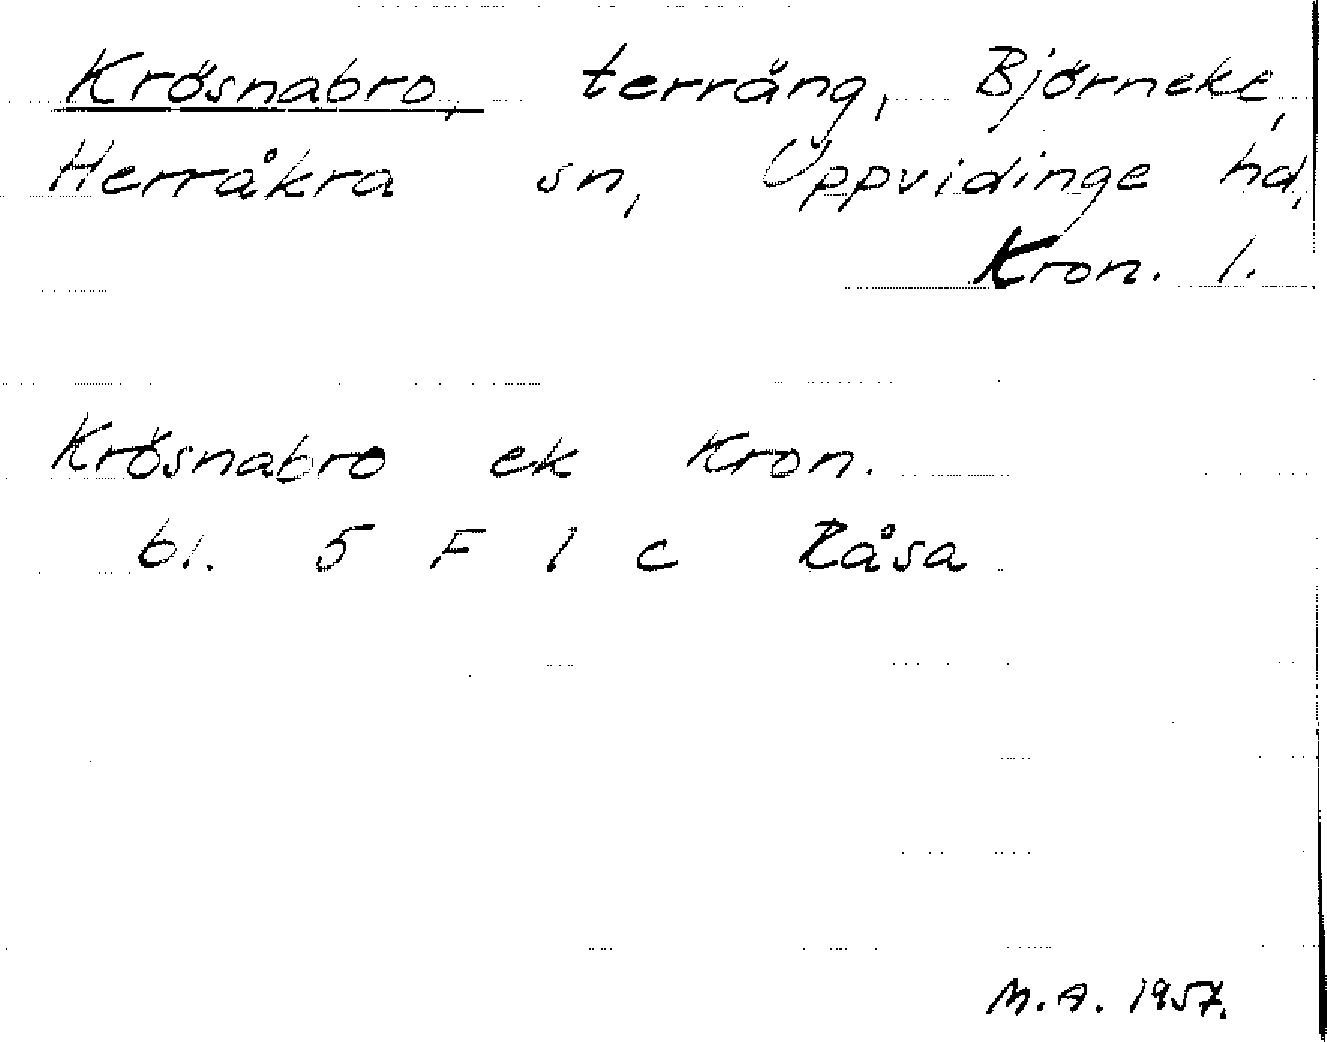 Krösnabro, terräng, Björneke,
Herråkra sn, Uppvidinge hd,
Kron. l.
Krösnabro ek Kron.
bl. 5 F 1 c Råsa
M.A. 1957.